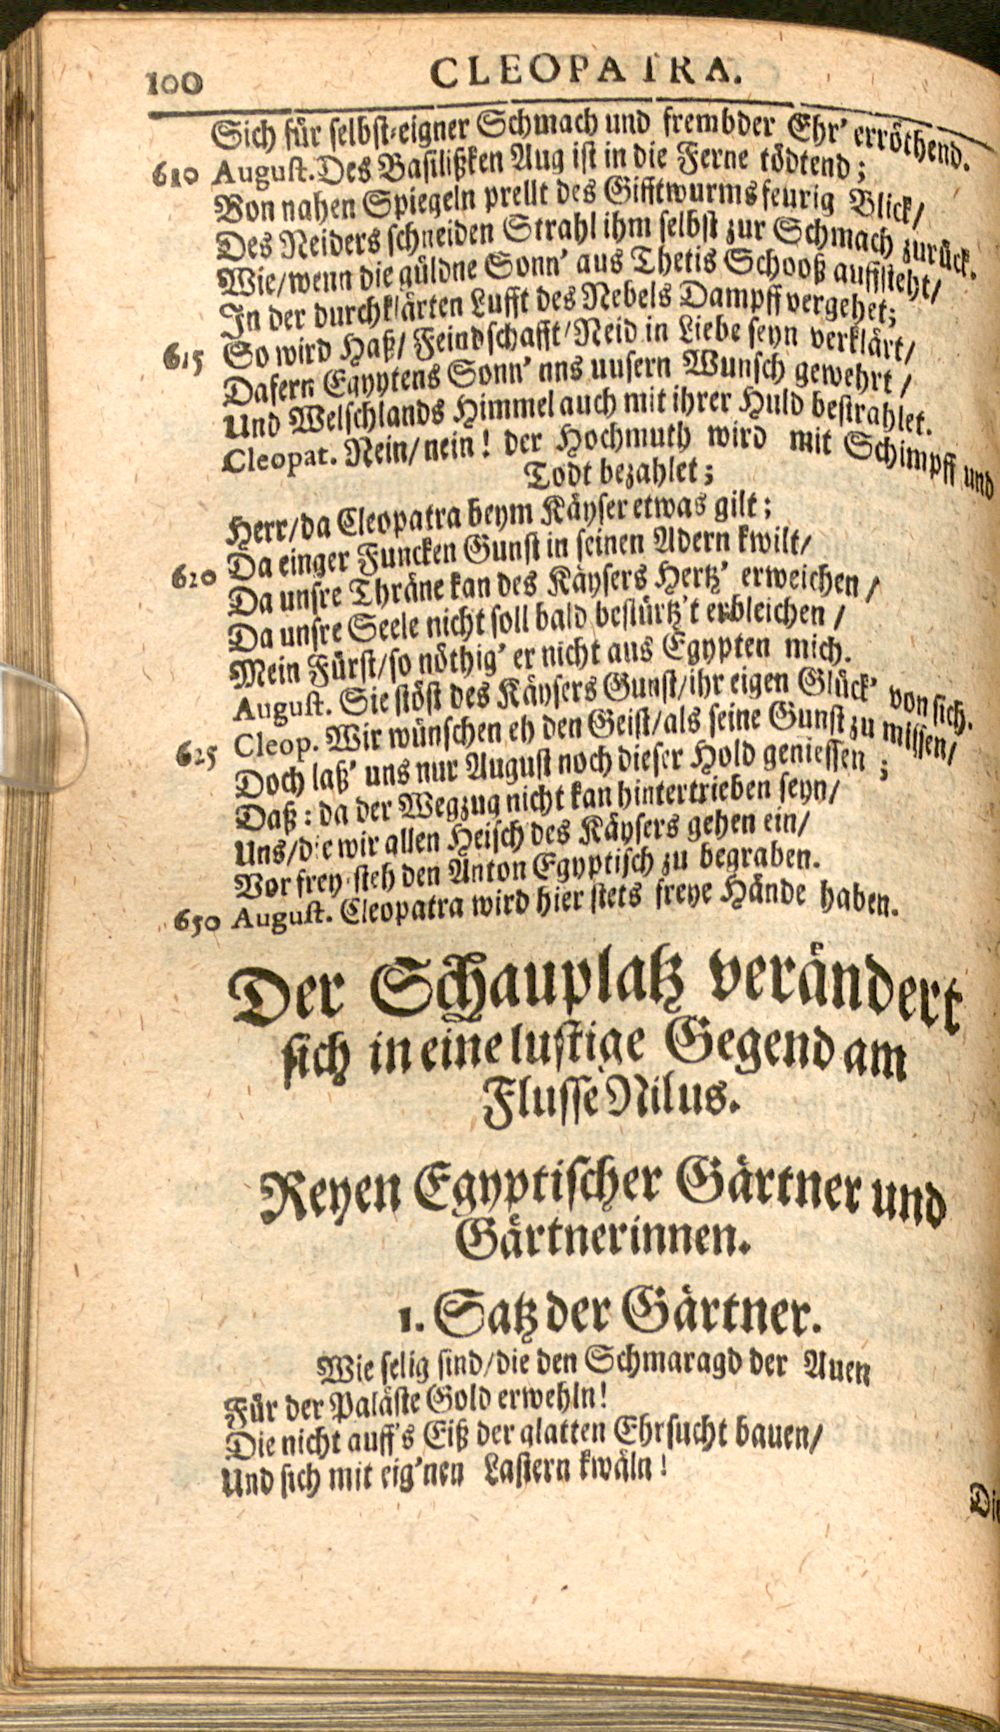 100 CLEOPATRA.
Sich für selbst-eigner Schmach und frembder Ehr' erröthend.
610 August. Des Basilißken Aug ist in die Ferne tödtend;
Von nahen Spiegeln prellt des Gifftwurms feurig Blick/
Des Neiders schneiden Strahl ihm selbst zur Schmach zurück.
Wie/wenn die güldne Sonn' aus Thetis Schooß auffsteht/
In der durchklärten Lufft des Nebels Dampff vergehet;
615 So wird Haß/ Feindschafft/Neid in Liebe seyn verklärt/
Dafern Egyytens Sonn' nns uusern Wunsch gewehrt /
Und Welschlands Himmel auch mit ihrer Huld bestrahlet.
Cleopat. Nein/nein! der Hochmuth wird mit Schimpff und
Todt bezahlet;
Herr/da Cleopatra beym Käyser etwas gilt;
620 Da einger Funcken Gunst in seinen Adern kwilt/
Da unsre Thräne kan des Käysers Hertz' erweichen /
Da unsre Seele nicht soll bald bestürtz't erbleichen /
Mein Fürst/so nöthig' er nicht aus Egypten mich.
August. Sie stöst des Käysers Gunst/ihr eigen Glück' von sich.
625 Cleop. Wir wünschen eh den Geist/als seine Gunst zu missen/
Doch laß' uns nur August noch dieser Hold geniessen ;
Daß: da der Wegzug nicht kan hintertrieben seyn/
Uns/die wir allen Heisch des Käysers gehen ein/
Vor frey steh den Anton Egyptisch zu begraben.
650 August. Cleopatra wird hier stets freye Hände haben.
Der Schauplatz verändert
sich in eine lustige Gegend am
Flusse Nilus.
Reyen Egyptischer Gärtner und
Gärtnerinnen.
1. Satz der Gärtner.
Wie selig sind/die den Schmaragd der Auen
Für der Paläste Gold erwehln!
Die nicht auff's Eiß der glatten Ehrsucht bauen/
Und sich mit eig'nen Lastern kwäln!
Die